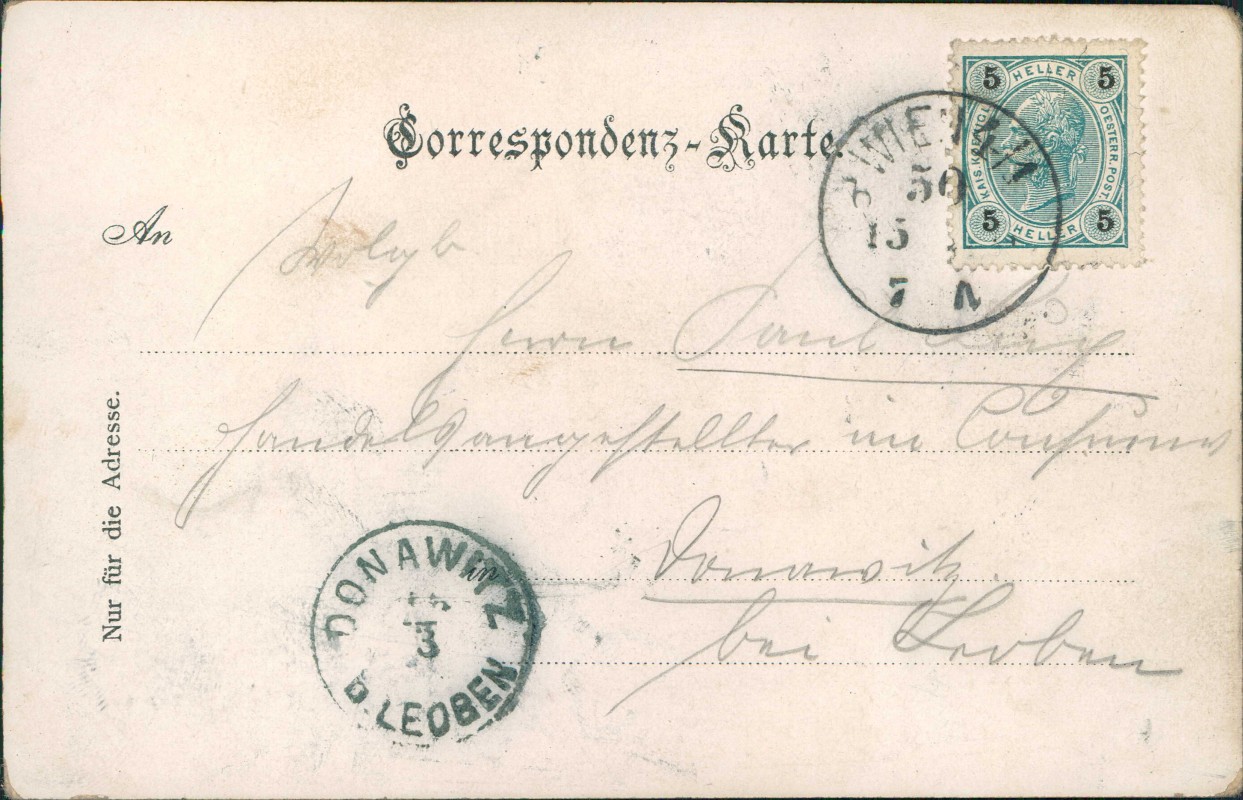 Correspondenz-Karte.
5 HELLER 5
KAIS. KOENIGL. OESTERR. POST
5 HELLER 5
WIEN
50
15
7 N
An
Herrn Paul
Handelsangestellter im
Donawitz
bei Leoben
in
DONAWITZ
3
B. LEOBEN
Nur für die Adresse.